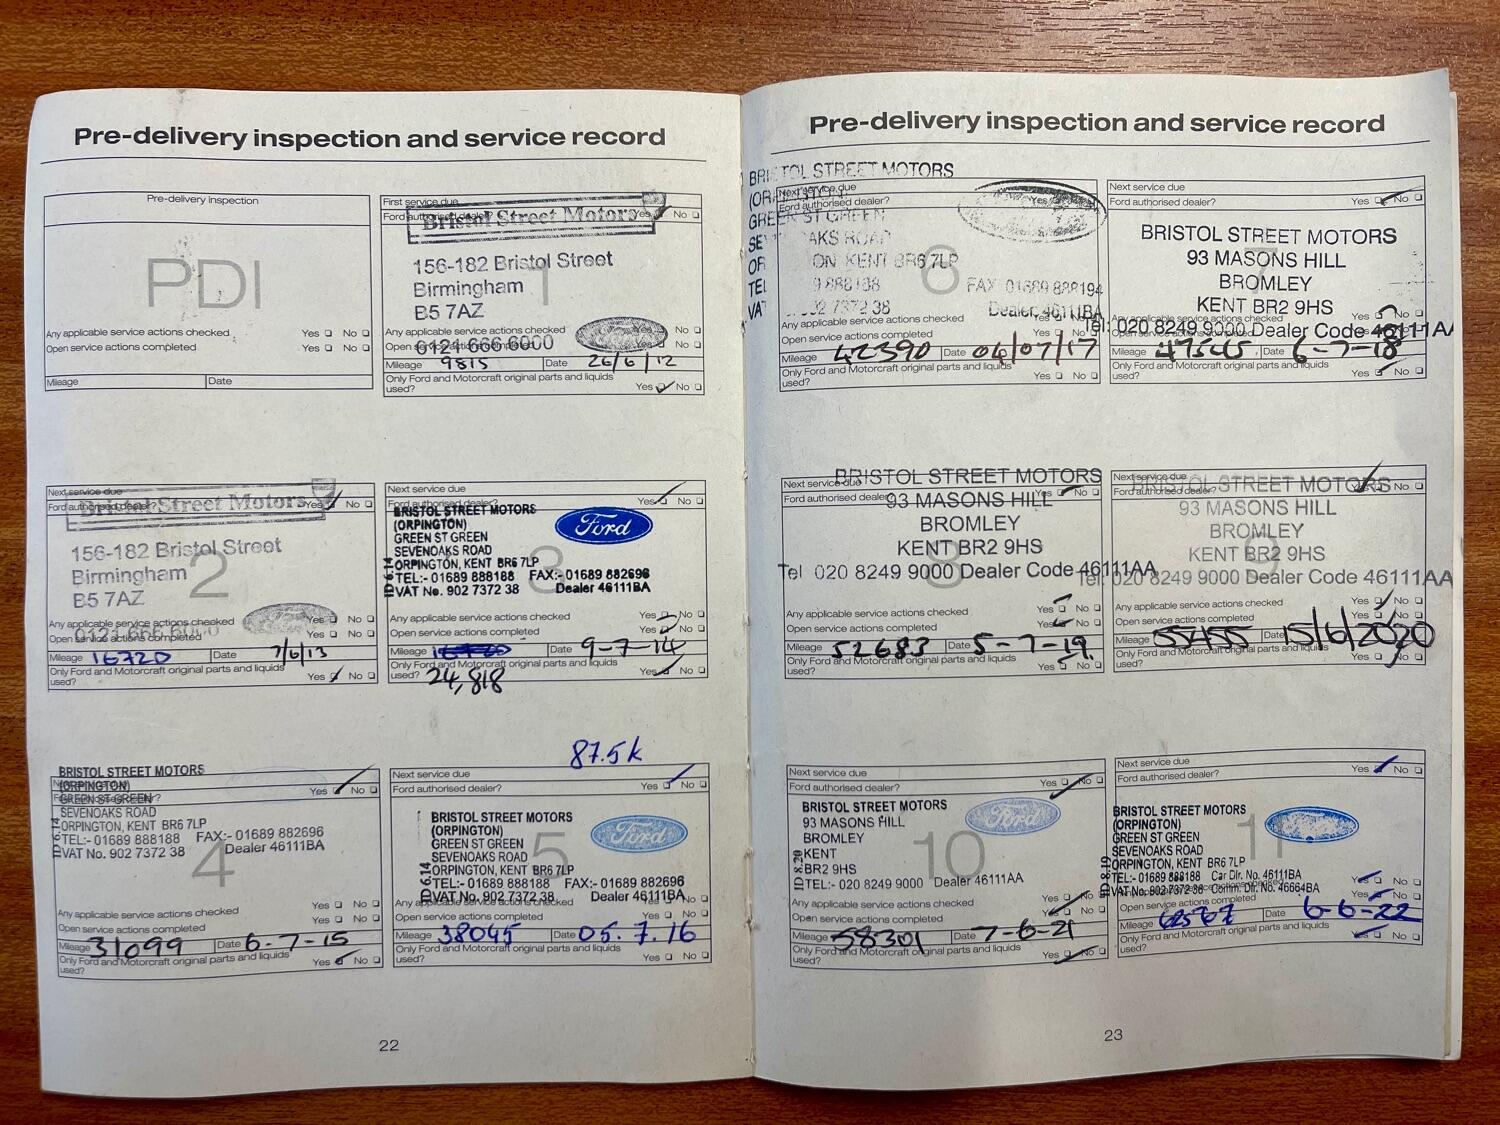 Pre-delivery inspection and service record
Pre-delivery inspection
PDI
Any applicable service actions checked Yes No
Open service actions completed Yes No
Mileage Date
First service due
Ford authorised dealer? Yes No
Bristol Street Motors
1
156-182 Bristol Street
Birmingham
B5 7AZ
0121 666 6000
Any applicable service actions checked Yes No
Open service actions completed Yes No
Mileage 9815 Date 26/6/12
Only Ford and Motorcraft original parts and liquids used? Yes No
Next service due
Ford authorised dealer? Yes No
Bristol Street Motors
2
156-182 Bristol Street
Birmingham
B5 7AZ
0121 666 6000
Any applicable service actions checked Yes No
Open service actions completed Yes No
Mileage 16720 Date 7/6/13
Only Ford and Motorcraft original parts and liquids used? Yes No
Next service due
Ford authorised dealer? Yes No
3
BRISTOL STREET MOTORS
(ORPINGTON)
GREEN ST GREEN
SEVENOAKS ROAD
ORPINGTON, KENT BR6 7LP
TEL:- 01689 888188 FAX:- 01689 882696
VAT No. 902 7372 38 Dealer 46111BA
ID 6.14
Ford
Any applicable service actions checked Yes No
Open service actions completed Yes No
Mileage 16720 Date 9-7-14
Only Ford and Motorcraft original parts and liquids used? Yes No
24,818
BRISTOL STREET MOTORS
(ORPINGTON)
GREEN ST GREEN
SEVENOAKS ROAD
ORPINGTON, KENT BR6 7LP
TEL:- 01689 888188 FAX:- 01689 882696
VAT No. 902 7372 38 Dealer 46111BA
ID 6.14
Yes No
4
Any applicable service actions checked Yes No
Open service actions completed Yes No
Mileage 31099 Date 6-7-15
Only Ford and Motorcraft original parts and liquids used? Yes No
87.5k
Next service due
Ford authorised dealer? Yes No
5
BRISTOL STREET MOTORS
(ORPINGTON)
GREEN ST GREEN
SEVENOAKS ROAD
ORPINGTON, KENT BR6 7LP
TEL:- 01689 888188 FAX:- 01689 882696
VAT No. 902 7372 38 Dealer 46111BA
ID 6.14
Ford
Any applicable service actions checked Yes No
Open service actions completed Yes No
Mileage 38045 Date 05.7.16
Only Ford and Motorcraft original parts and liquids used? Yes No
22
Pre-delivery inspection and service record
BRISTOL STREET MOTORS
Next service due
Ford authorised dealer? Yes No
6
GREEN ST GREEN
ROAD
KENT BR6 7LP
FAX 01689 888194
Dealer 46111BA
Any applicable service actions checked Yes No
Open service actions completed Yes No
Mileage 42390 Date 04/07/17
Only Ford and Motorcraft original parts and liquids used? Yes No
Next service due
Ford authorised dealer? Yes No
7
BRISTOL STREET MOTORS
93 MASONS HILL
BROMLEY
KENT BR2 9HS
Tel: 020 8249 9000 Dealer Code 46111AA
Any applicable service actions checked
Open service actions completed
Mileage Date 6-7-18
Only Ford and Motorcraft original parts and liquids used? Yes No
BRISTOL STREET MOTORS
Next service due
Ford authorised dealer? Yes No
8
93 MASONS HILL
BROMLEY
KENT BR2 9HS
Tel 020 8249 9000 Dealer Code 46111AA
Any applicable service actions checked Yes No
Open service actions completed Yes No
Mileage 52683 Date 5-7-19
Only Ford and Motorcraft original parts and liquids used? Yes No
BRISTOL STREET MOTORS
Next service due
Ford authorised dealer? Yes No
9
93 MASONS HILL
BROMLEY
KENT BR2 9HS
Tel: 020 8249 9000 Dealer Code 46111AA
Any applicable service actions checked Yes No
Open service actions completed Yes No
Mileage 55455 Date 15/6/2020
Only Ford and Motorcraft original parts and liquids used? Yes No
Next service due
Ford authorised dealer? Yes No
10
BRISTOL STREET MOTORS
93 MASONS HILL
BROMLEY
KENT
BR2 9HS
TEL:- 020 8249 9000 Dealer 46111AA
ID 8.20
Ford
Any applicable service actions checked Yes No
Open service actions completed Yes No
Mileage 58301 Date 7-6-21
Only Ford and Motorcraft original parts and liquids used? Yes No
Next service due
Ford authorised dealer? Yes No
11
BRISTOL STREET MOTORS
(ORPINGTON)
GREEN ST GREEN
SEVENOAKS ROAD
ORPINGTON, KENT BR6 7LP
TEL:- 01689 888188 Car Dlr. No. 46111BA
VAT No. 902 7372 38 Comm. Dlr. No. 46664BA
Open service actions completed Yes No
Mileage Date 6-6-22
Only Ford and Motorcraft original parts and liquids used? Yes No
23